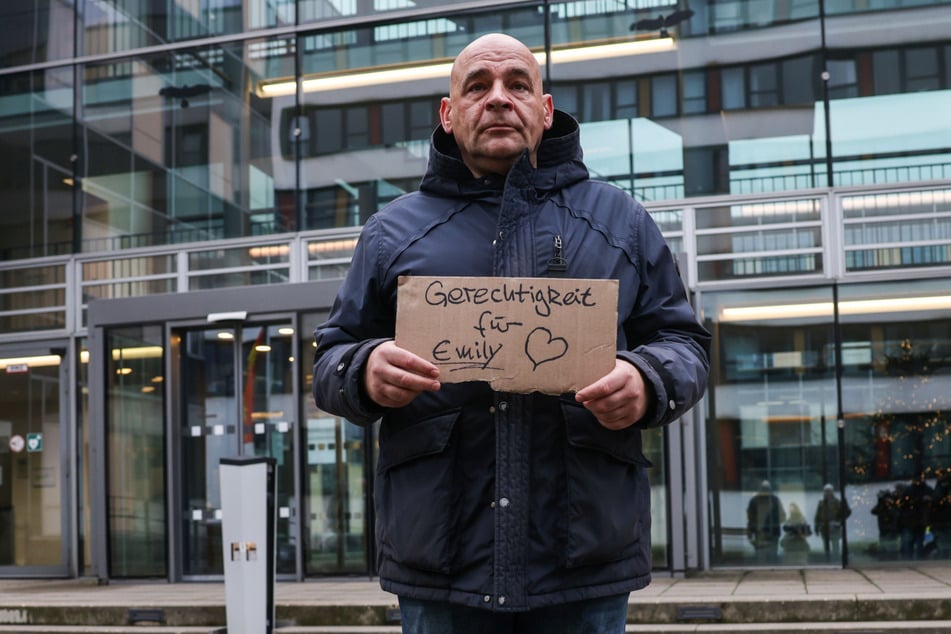 Gerechtigkeit
für
Emily